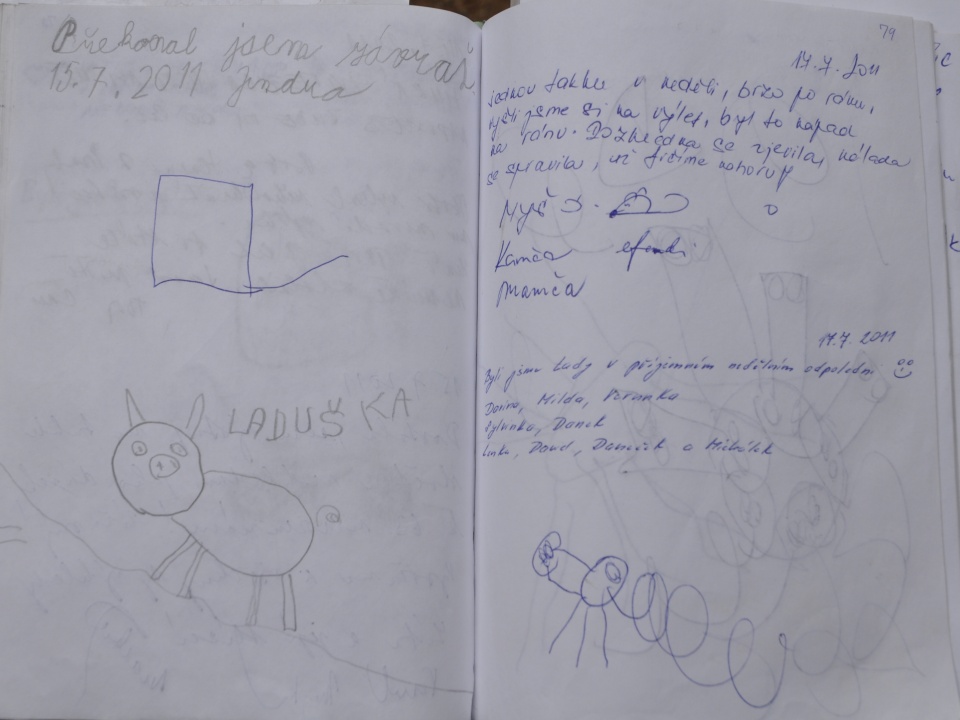 Překonal jsem závrať.
15.7. 2011 Jindra
LADUŠKA
79
17.7. 2011
jednou takhle v neděli, brzo po ránu,
vyšli jsme si na výlet, byl to nápad
na ránu. Rozhledna se zjevila, nálada
se spravila, už frčíme nahoru!
Myš
Kamča efendi
Mamča
17.7. 2011
Byli jsme tady v příjemném nedělním odpoledni
Darina, Milda, Verunka
Danek
Lenka, David, Daneček a Mišálek